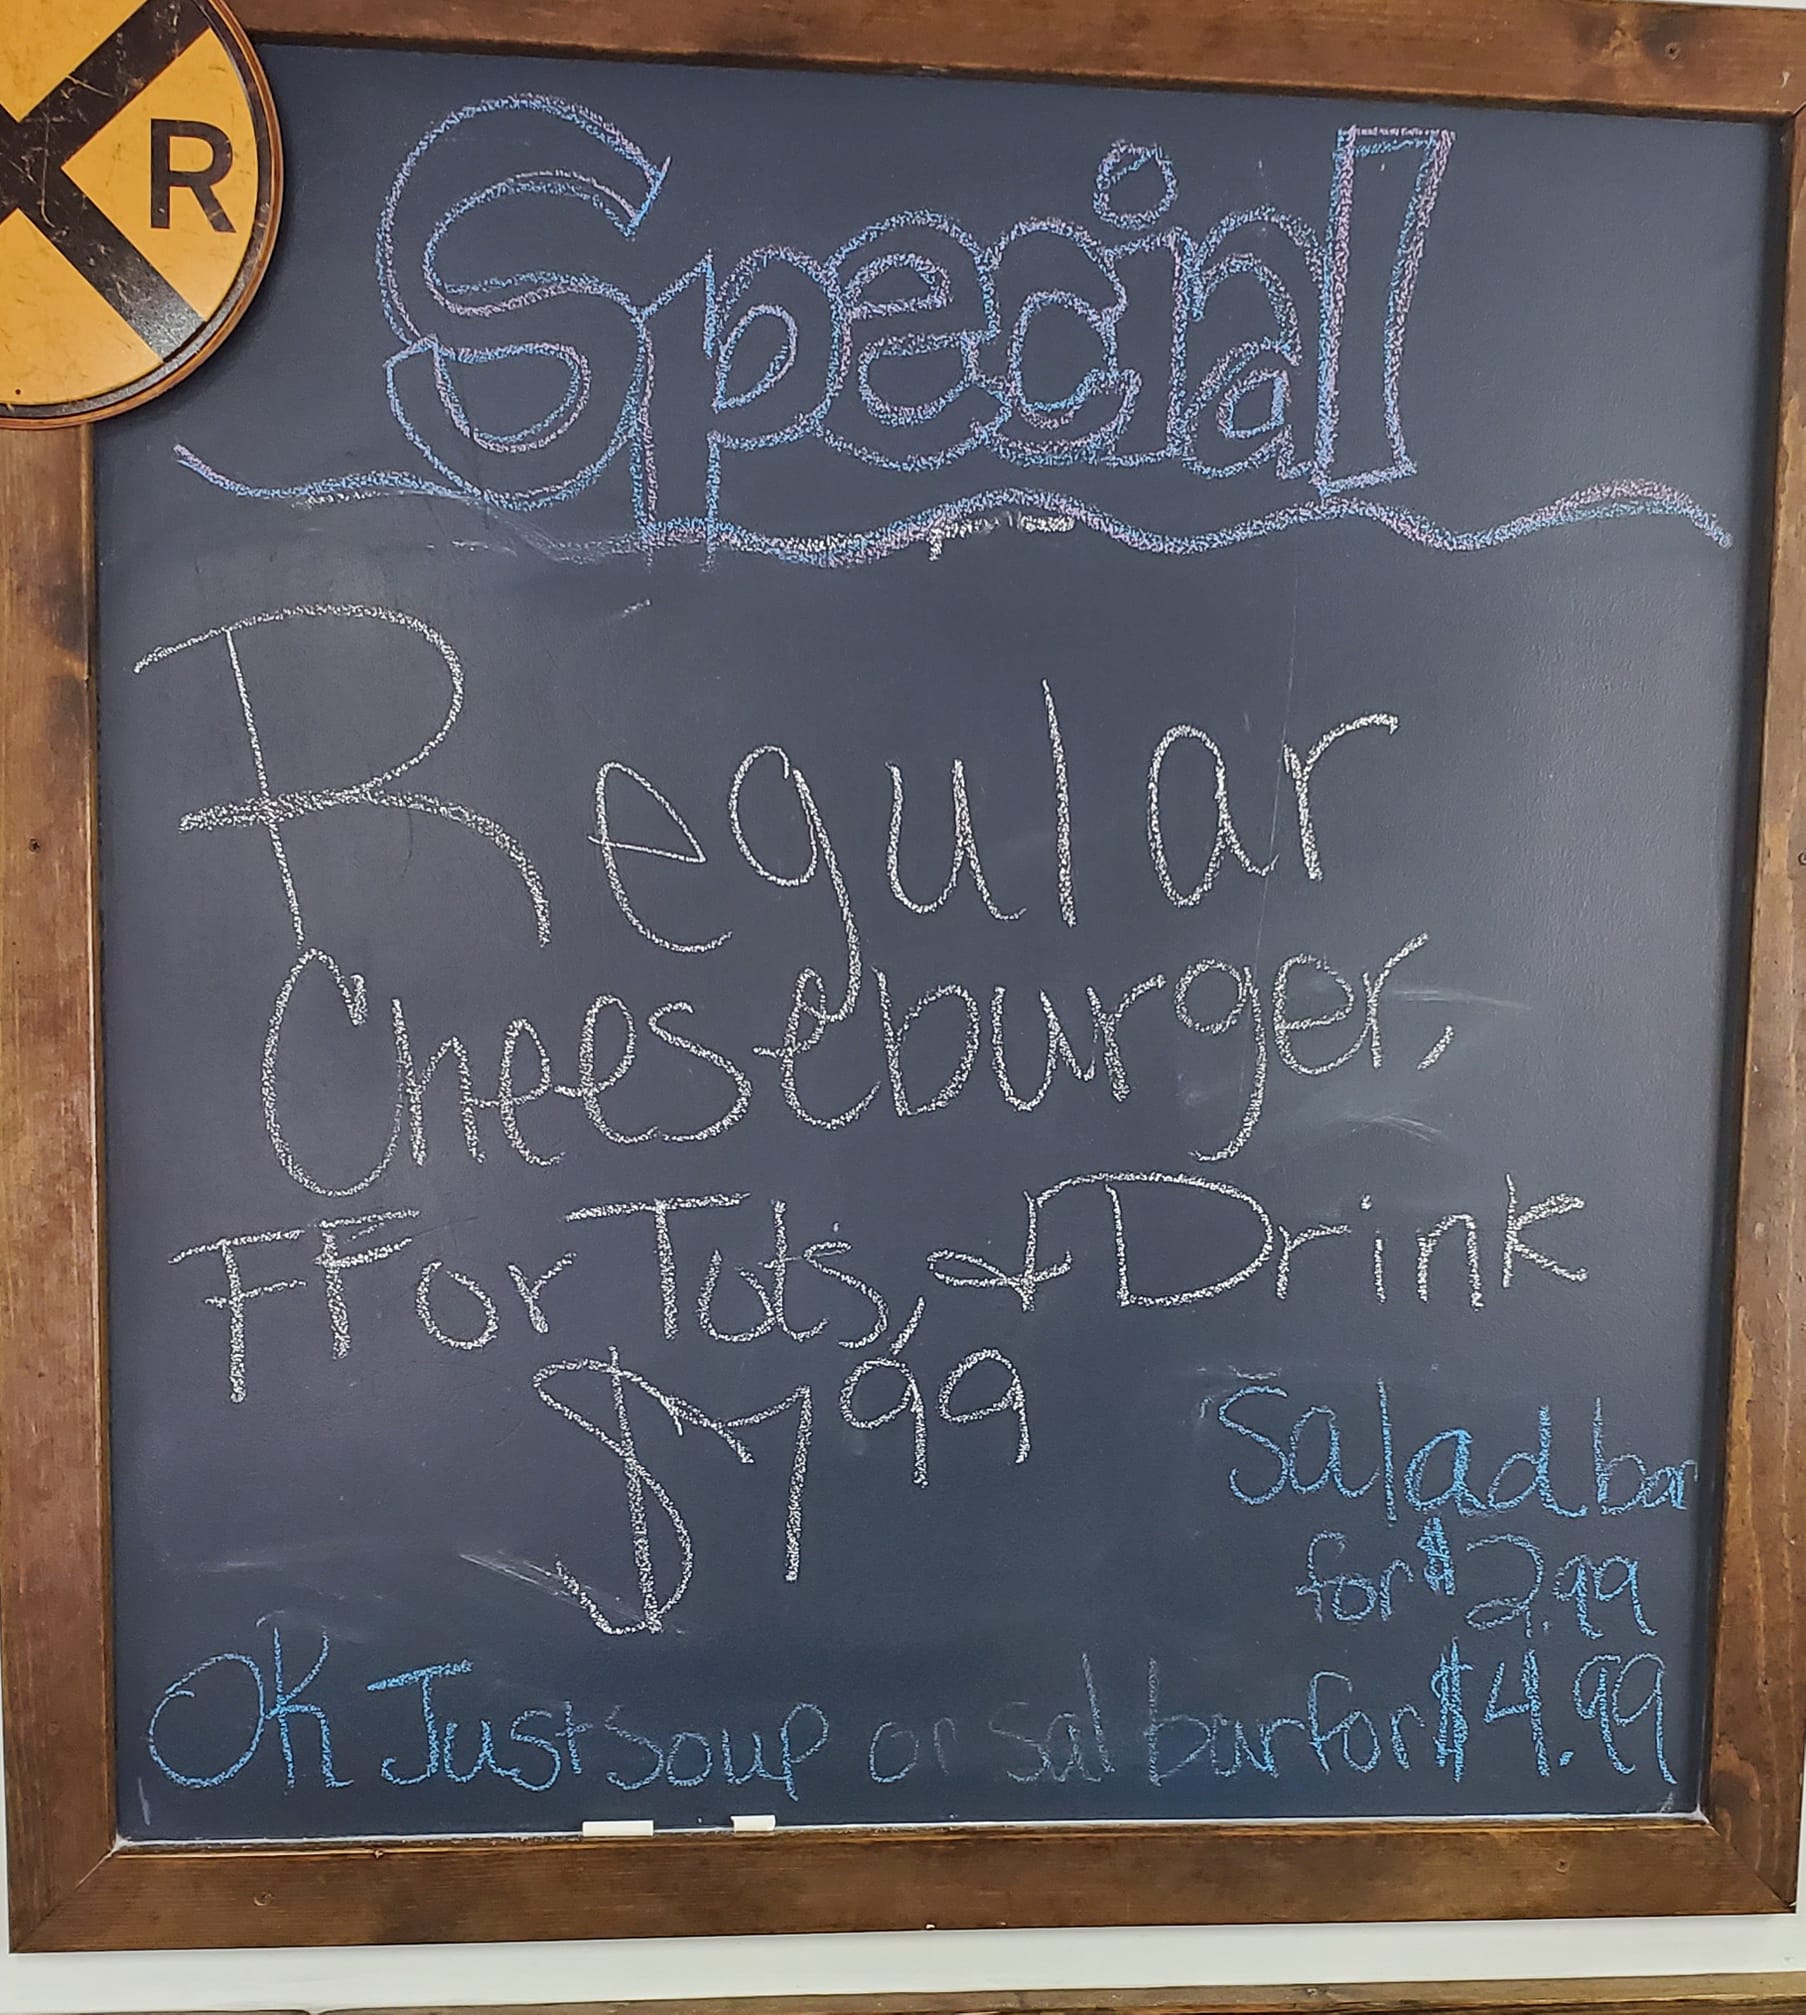 R
Special
Regular
Cheeseburger,
FF or Tots, & Drink
$7.99
Salad bar
for $2.99
OR Just soup or sal bar for $4.99